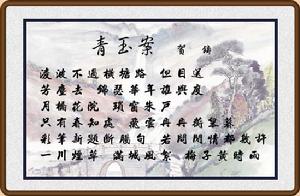 青玉案 賀鑄
淩波不過橫塘路 但目送
芳塵去 錦瑟華年誰與度
月橋花院 瑣窗朱戶
只有春知處 飛雲冉冉衡皋暮
彩筆新題斷腸句 若問閒情都幾許
一川煙草 滿城風絮 梅子黃時雨